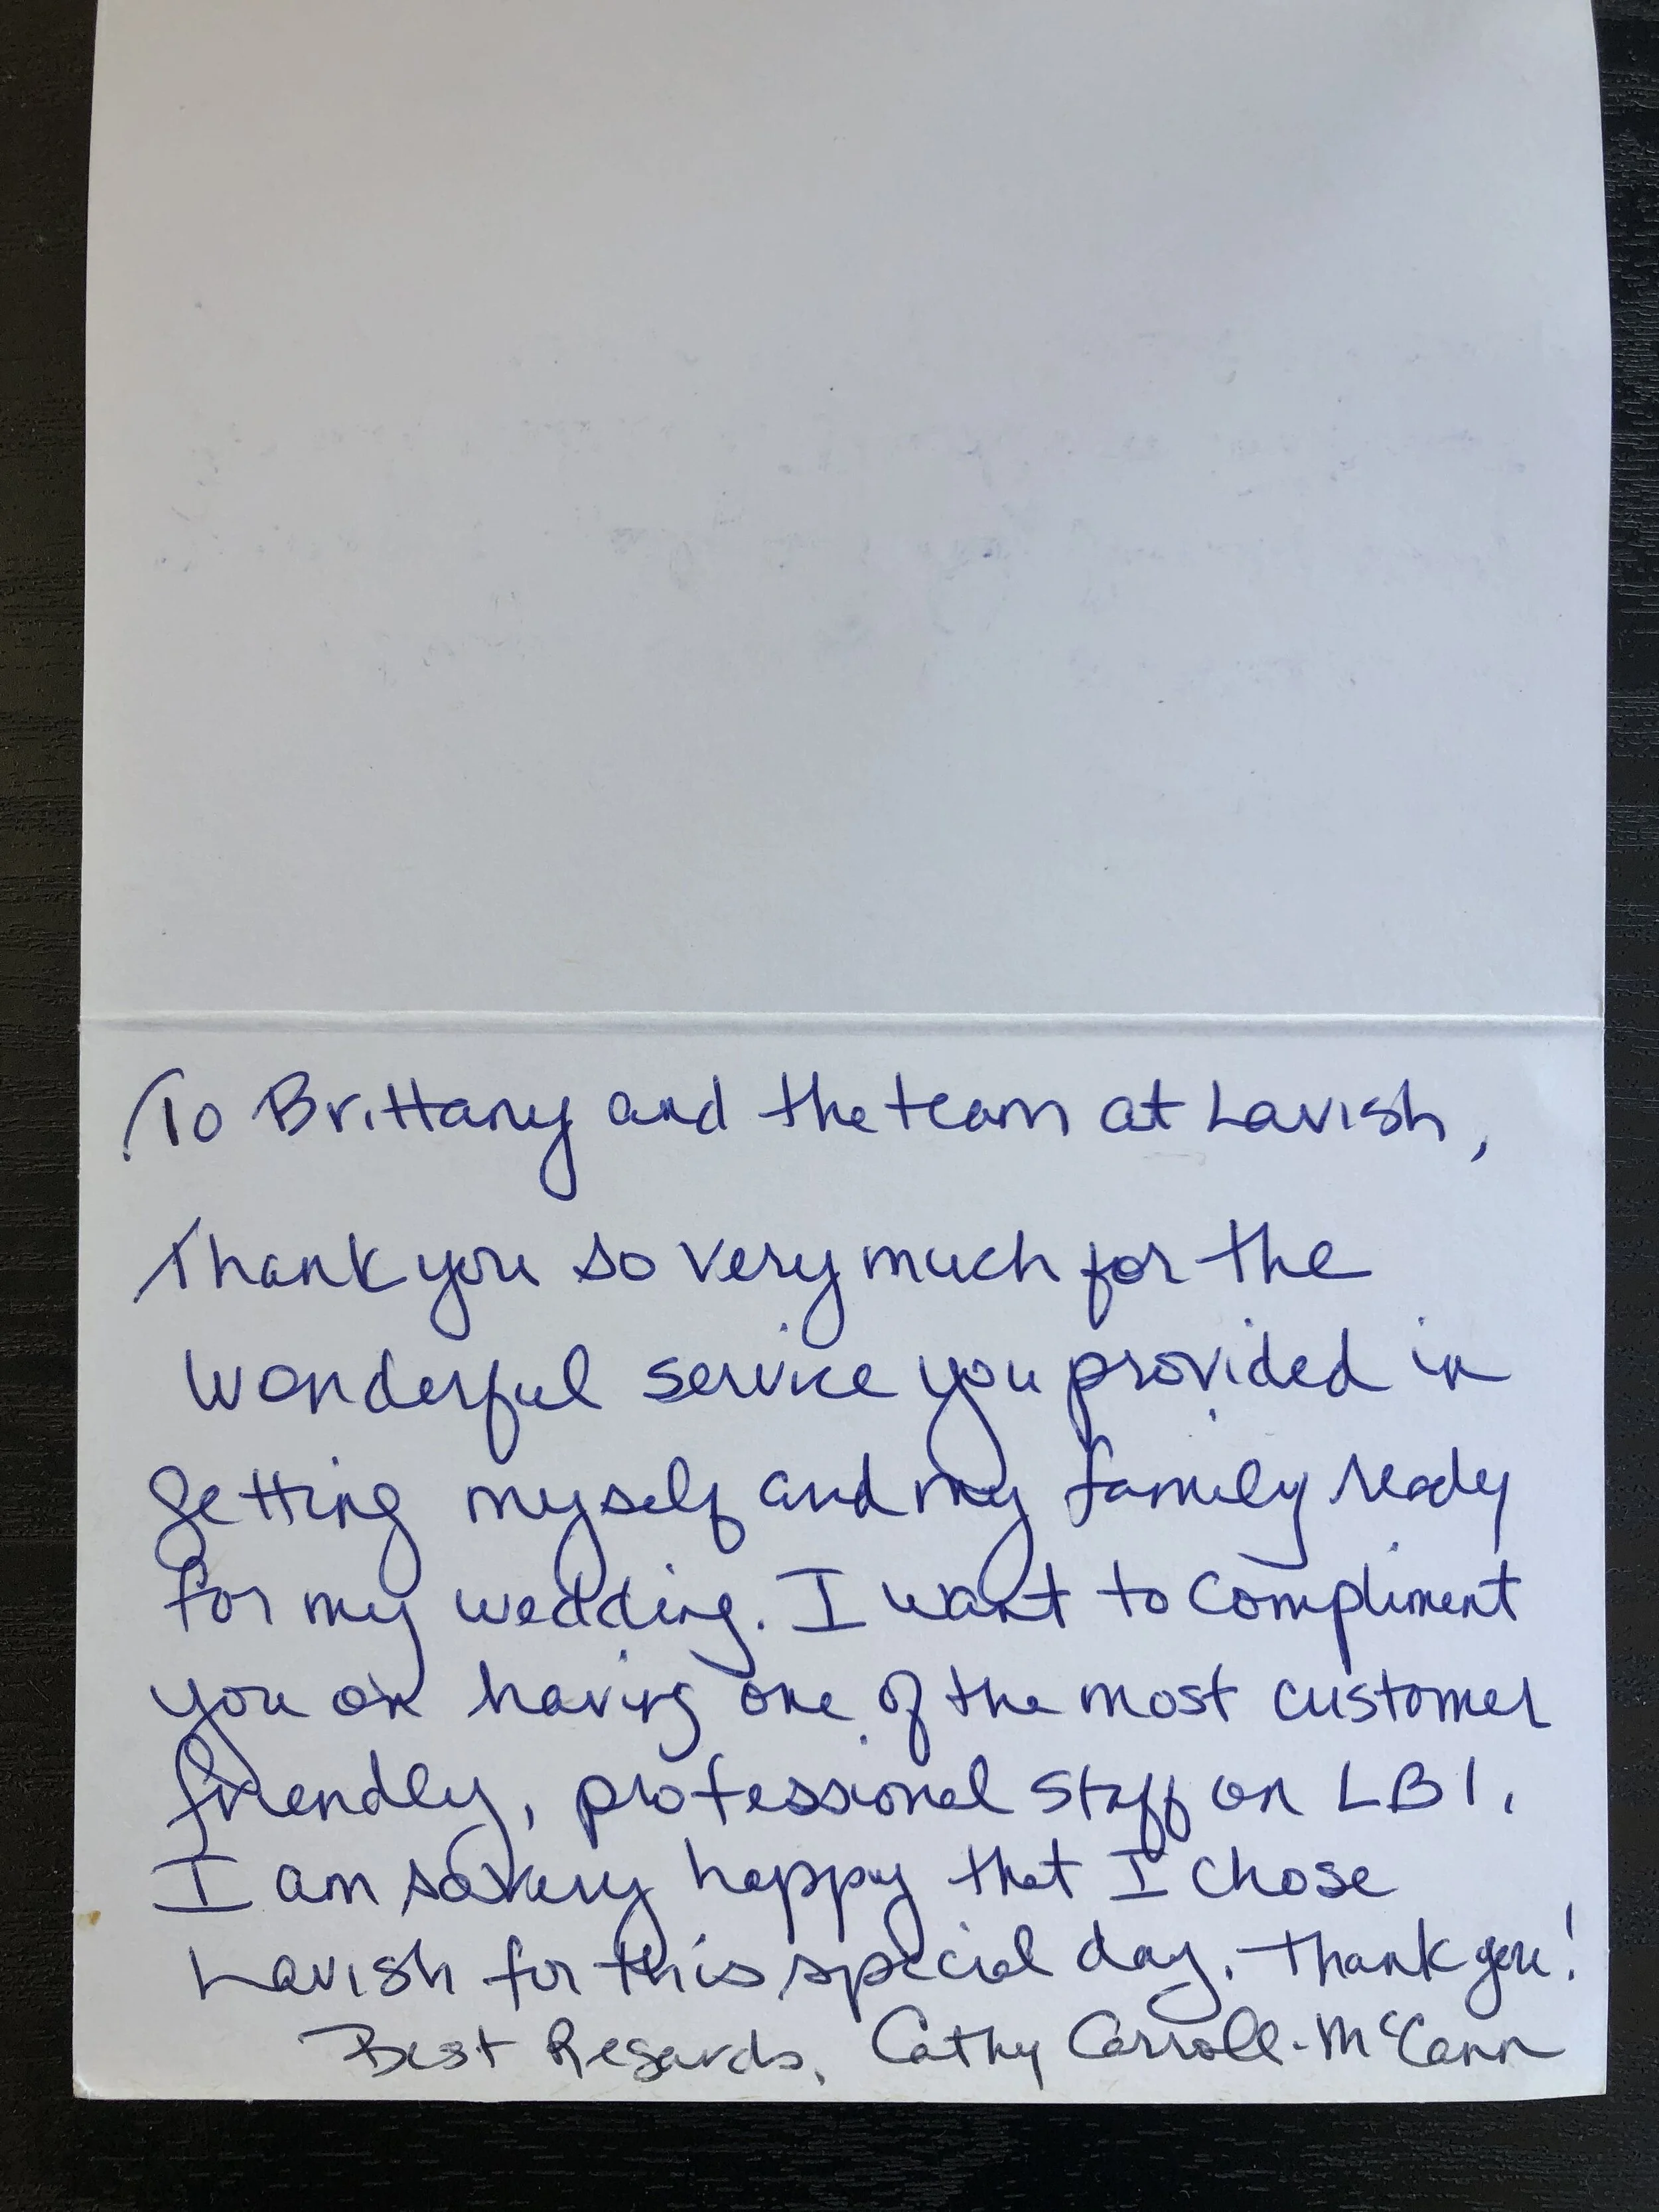 To Brittany and the team at Lavish,
Thank you so very much for the
wonderful service you provided in
getting myself and my family ready
for my wedding. I want to compliment
you on having one of the most customer
friendly, professional staff on LBI.
I am so very happy that I chose
Lavish for this special day. Thank you!
Best Regards, Cathy Carroll-McCann